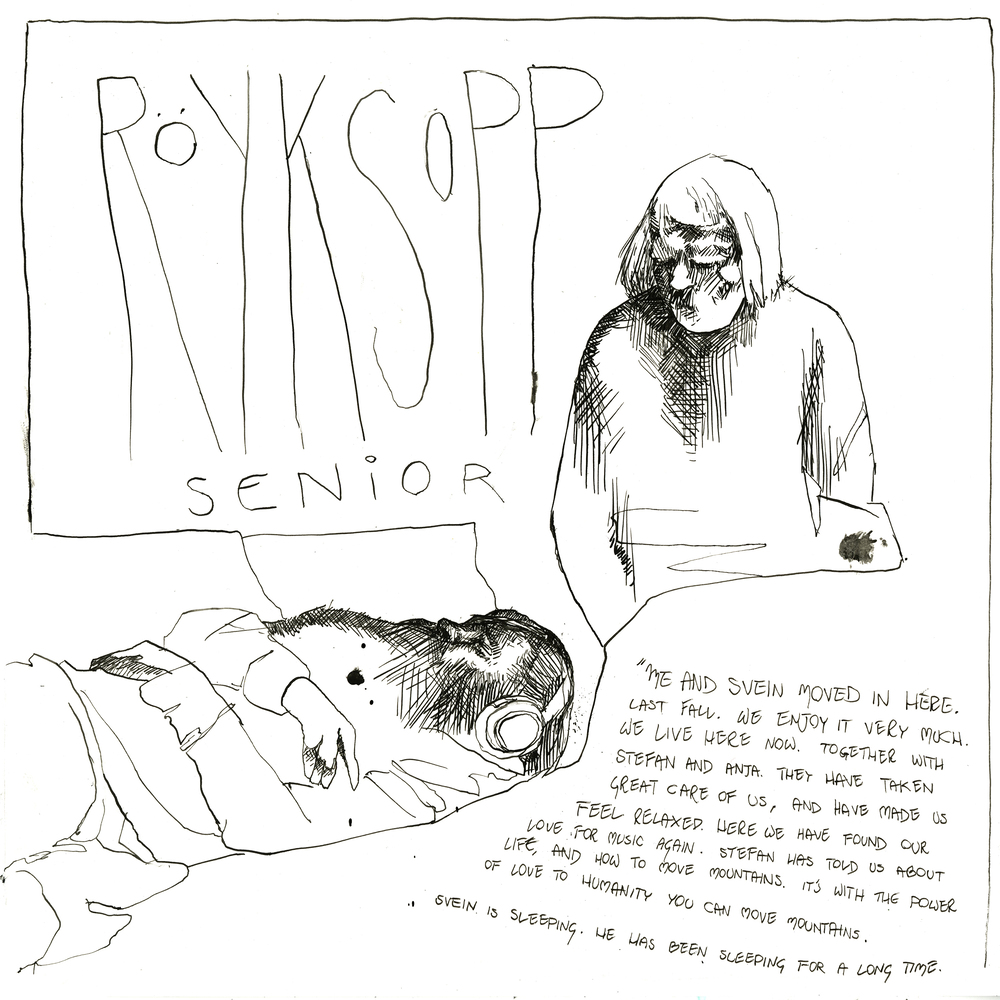 RÖYKSOPP
SENiOR
"ME AND SVEIN MOVED IN HERE.
LAST FALL. WE ENJOY IT VERY MUCH.
WE LIVE HERE NOW. TOGETHER WITH
STEFAN AND ANJA. THEY HAVE TAKEN
GREAT CARE OF US, AND HAVE MADE US
FEEL RELAXED. HERE WE HAVE FOUND OUR
LOVE FOR MUSIC AGAIN. STEFAN HAS TOLD US ABOUT
LIFE, AND HOW TO MOVE MOUNTAINS. IT'S WITH THE POWER
OF LOVE TO HUMANITY YOU CAN MOVE MOUNTAINS.
SVEIN IS SLEEPING. HE HAS BEEN SLEEPING FOR A LONG TIME.